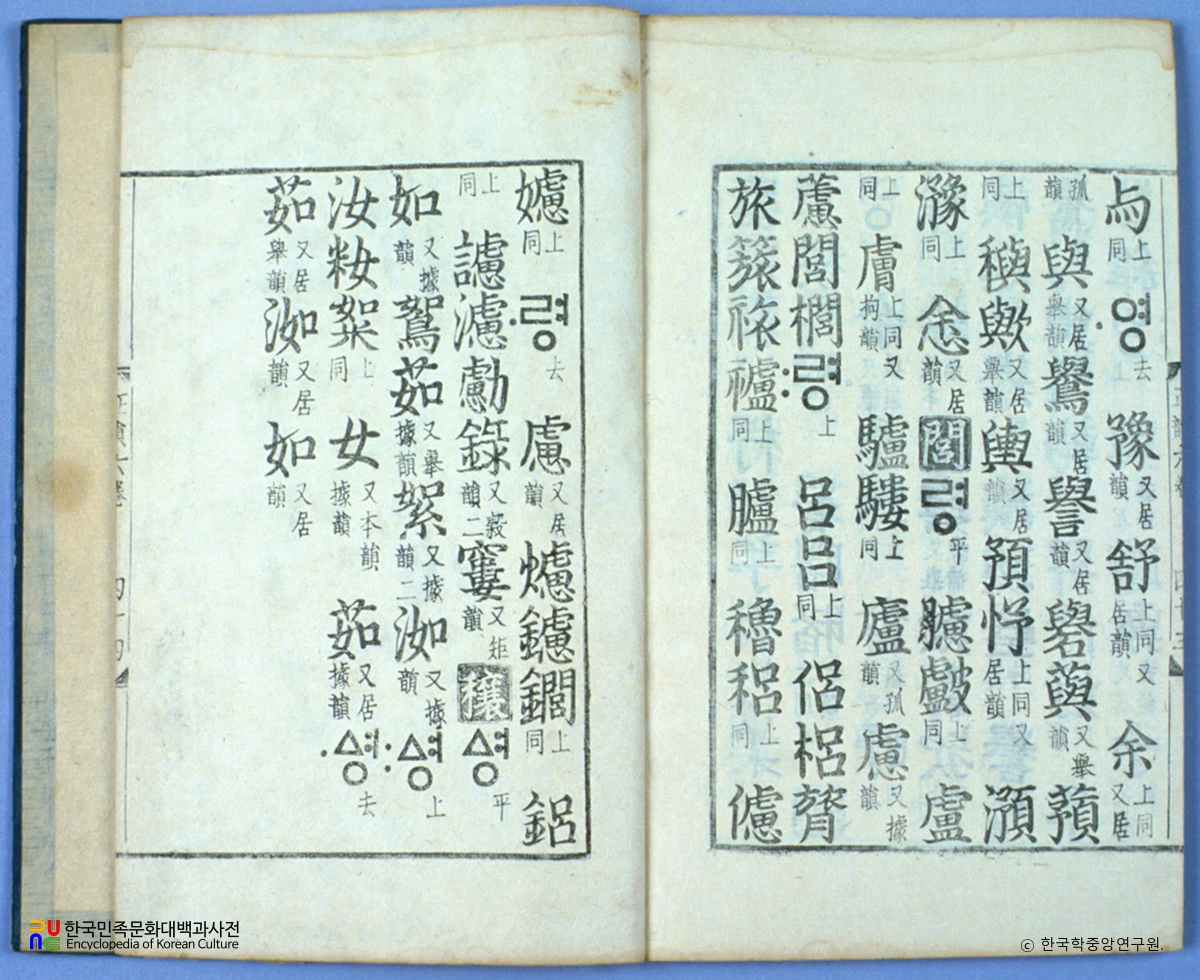 与上同 ·영去 豫又居韻 舒上同又居韻 余上同又居
孤韻 與又居擧韻 鸒又居韻 譽又居韻 礜藇又擧韻 蕷
上同 穥歟又居擧韻 輿又居韻 預忬上同又居韻 澦
上同 悆又居韻 閭 령平 臚 上同 盧
上同 膚上同又拘韻 驢 上同 廬又孤韻 慮又據韻
藘閭櫚 :령上 呂吕上同 侶梠膂
旅祣 上同 臚上同 穭稆上同 儢
正韻六卷
上同 ·령去 慮又居韻 爈鑢 上同 鋁
上同 濾勴錄又穀韻二 寠又矩韻 ᅀᅧᆼ平
如又據韻 鴽茹又擧據韻 絮又據韻二 洳又據韻 :ᅀᅧᆼ上
汝籹絮上同 女又本韻據韻 茹又居據韻 ·ᅀᅧᆼ去
茹又居擧韻 洳又居韻 如又居韻
正韻六卷 四十四
한국민족문화대백과사전
Encyclopedia of Korean Culture
ⓒ 한국학중앙연구원.